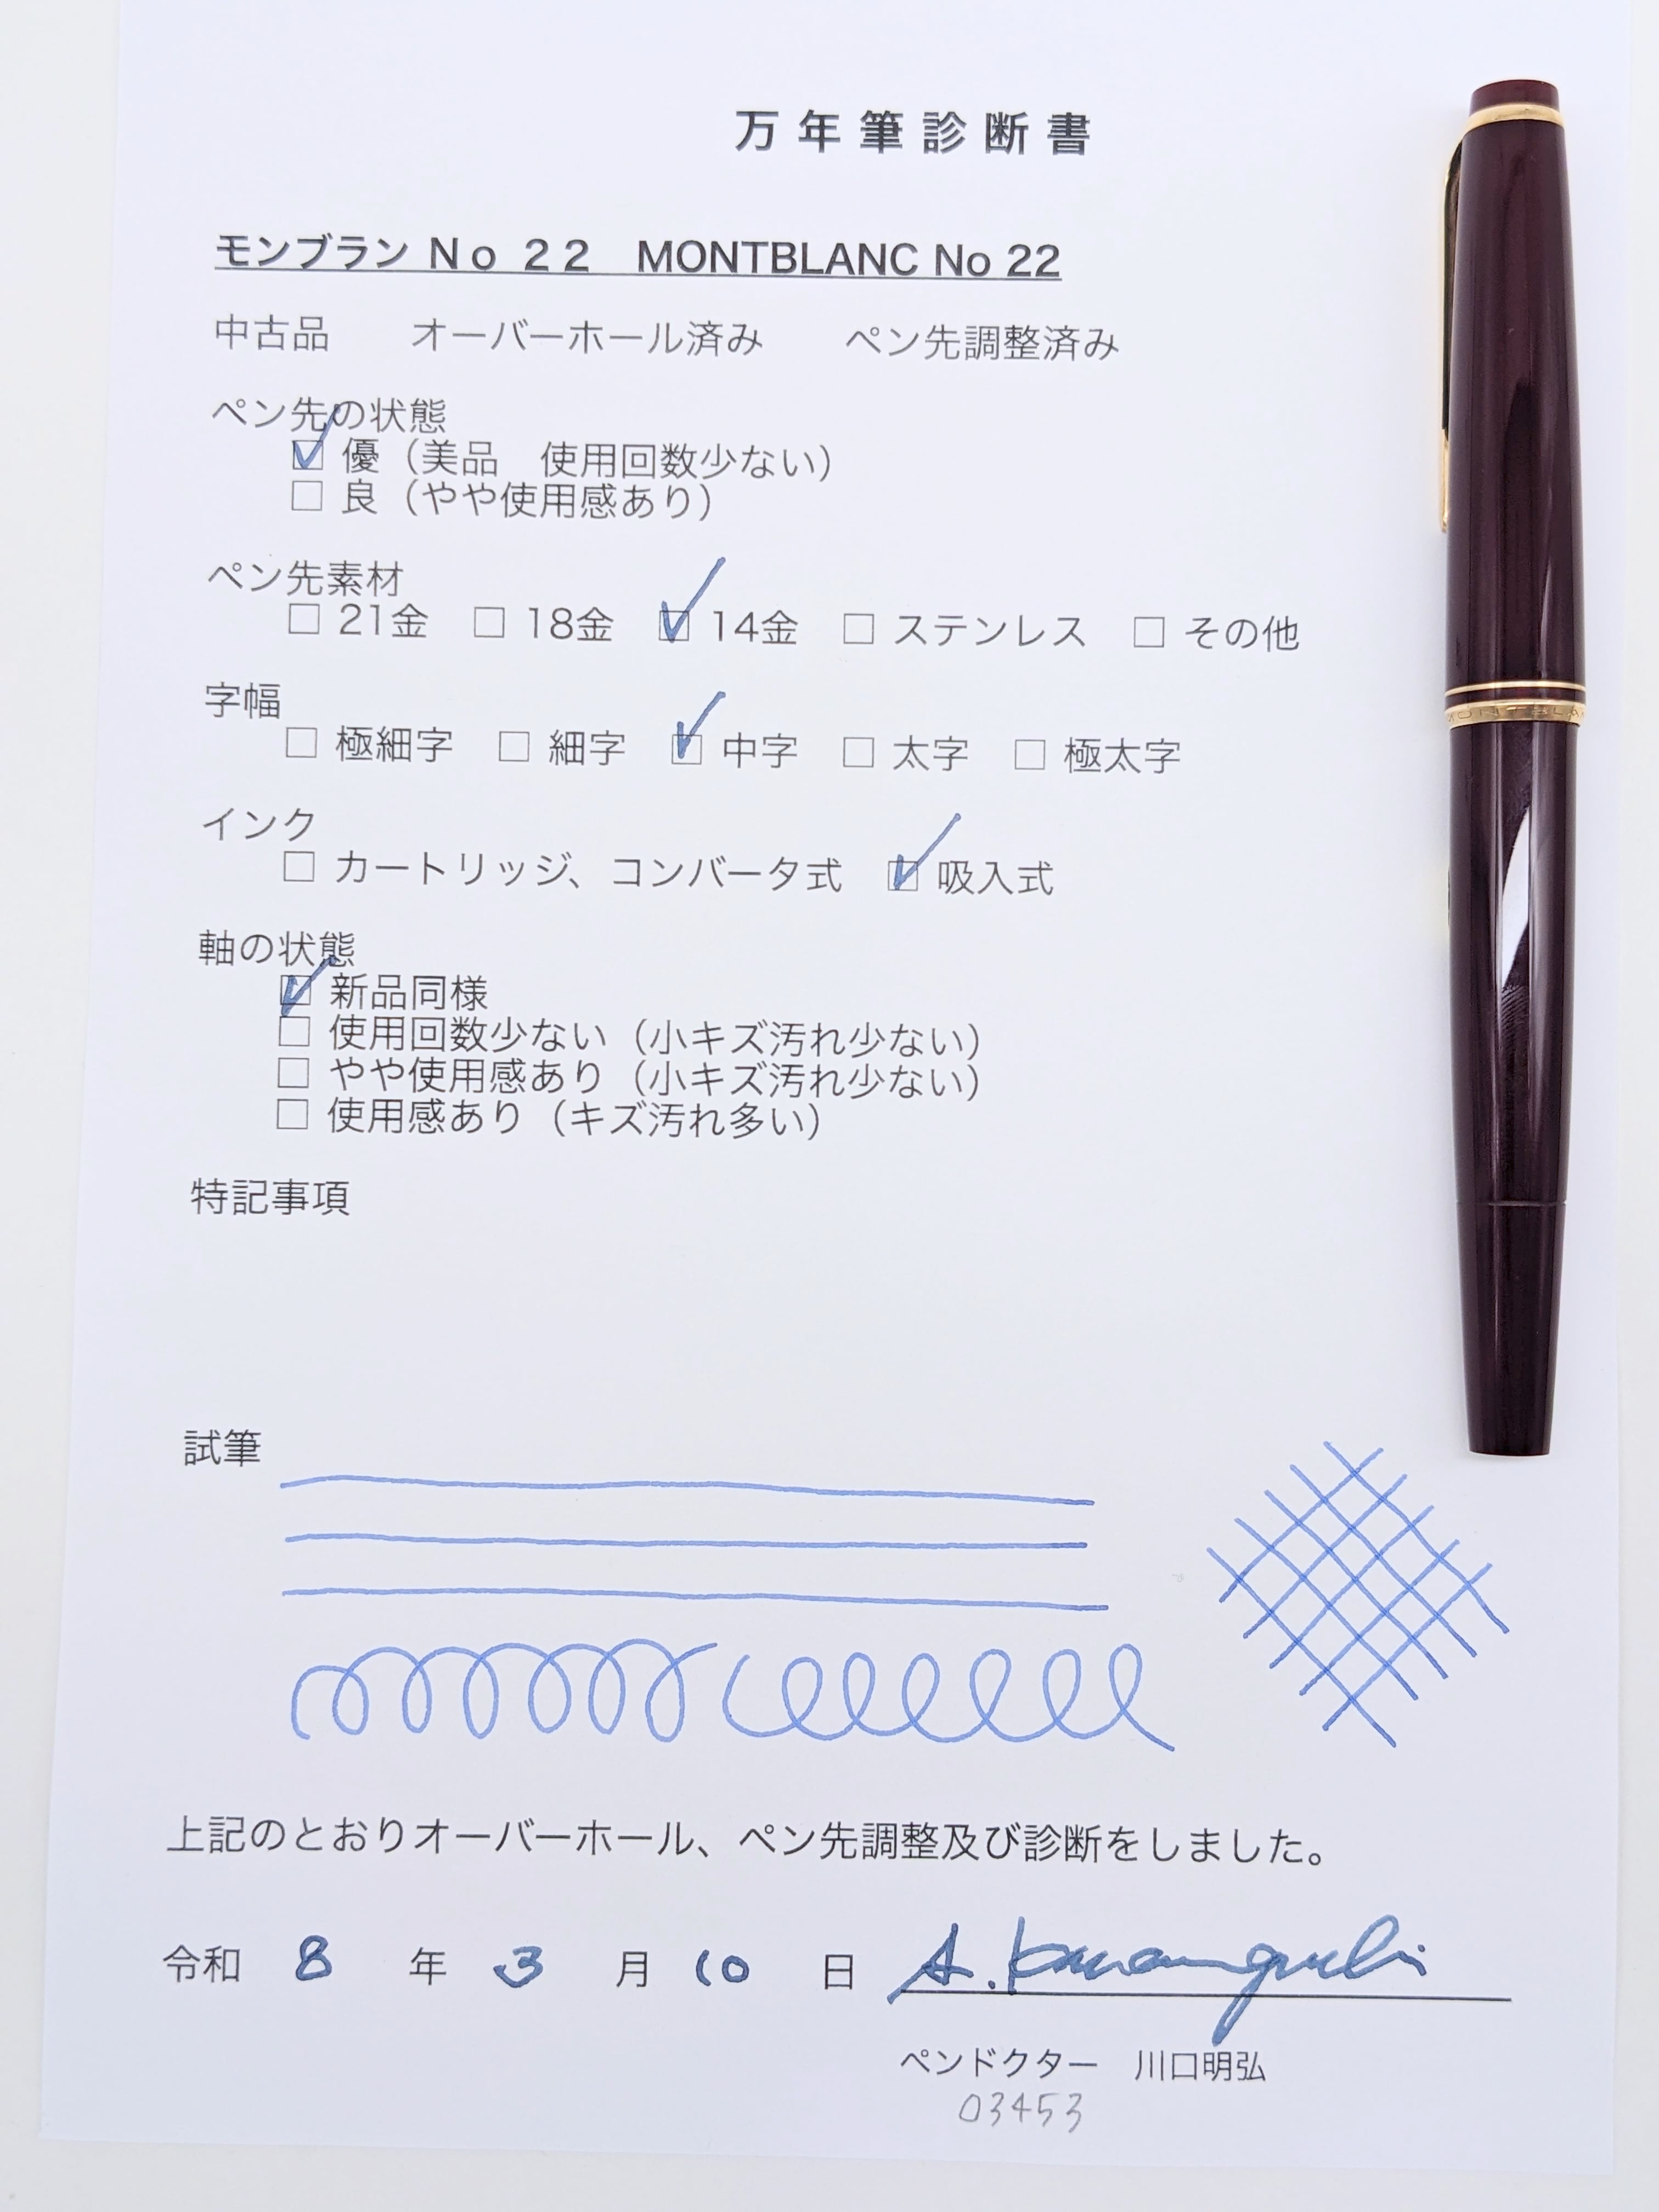 万年筆診断書
モンブラン Ｎｏ ２２　MONTBLANC No 22
中古品　　オーバーホール済み　　ペン先調整済み
ペン先の状態
☑ 優（美品　使用回数少ない）
□ 良（やや使用感あり）
ペン先素材
□ 21金　□ 18金　☑ 14金　□ ステンレス　□ その他
字幅
□ 極細字　□ 細字　☑ 中字　□ 太字　□ 極太字
インク
□ カートリッジ、コンバータ式　☑ 吸入式
軸の状態
☑ 新品同様
□ 使用回数少ない（小キズ汚れ少ない）
□ やや使用感あり（小キズ汚れ少ない）
□ 使用感あり（キズ汚れ多い）
特記事項
試筆
上記のとおりオーバーホール、ペン先調整及び診断をしました。
令和 8 年 3 月 10 日 A. Kawaguchi
ペンドクター　川口明弘
03453
MONTBLAN